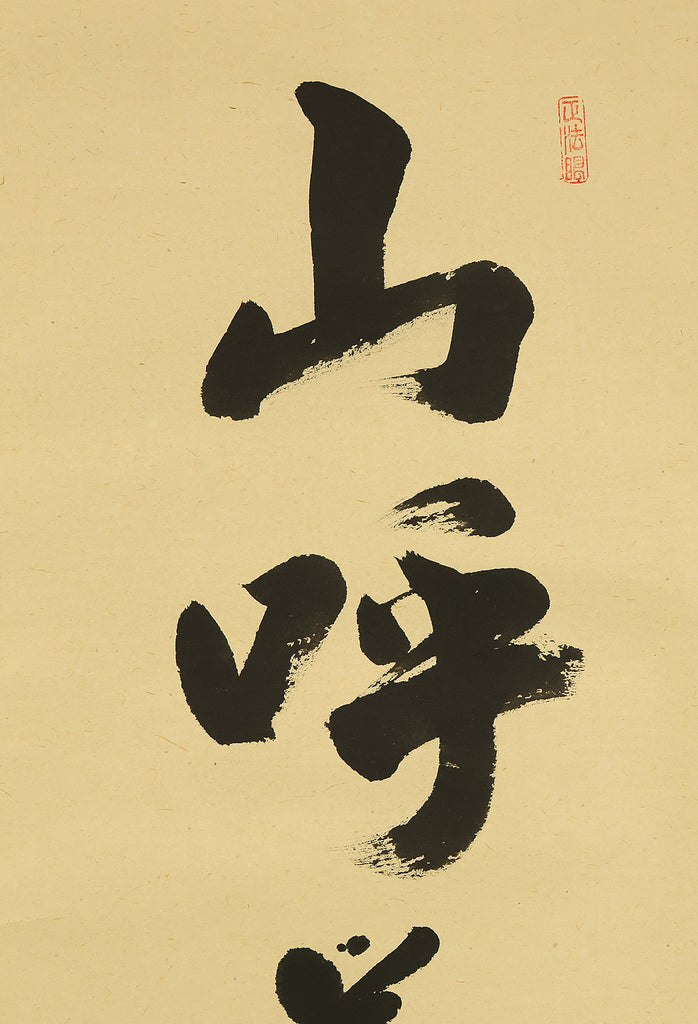 正法眼
山呼